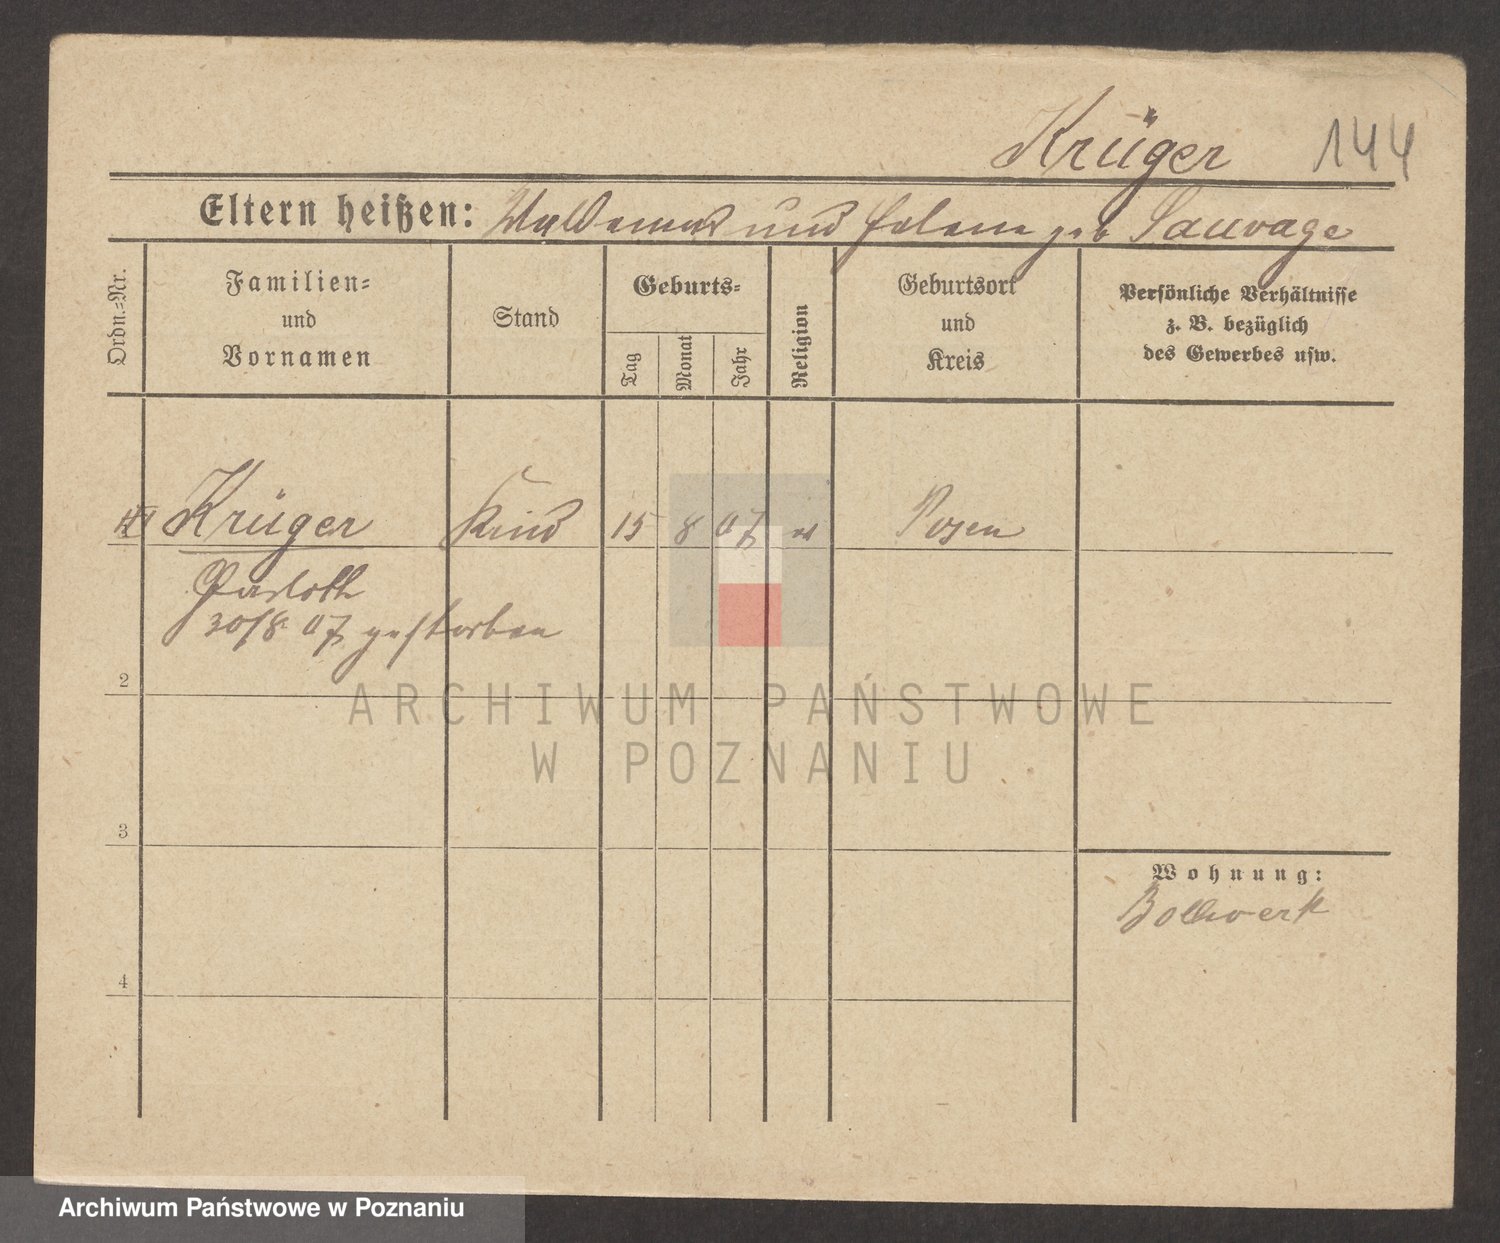 Krüger 144
Eltern heißen: Waldemar und Helene geb Sauvage
Ordn.=Nr.
Familien=
und
Vornamen
Stand
Geburts=
Tag
Monat
Jahr
Religion
Geburtsort
und
Kreis
Persönliche Verhältnisse
z. B. bezüglich
des Gewerbes usw.
Krüger Kind 15 8 07 Posen
30/8 07 gestorben
2
3
4
Wohnung:
Bollwerk
ARCHIWUM PAŃSTWOWE
W POZNANIU
Archiwum Państwowe w Poznaniu